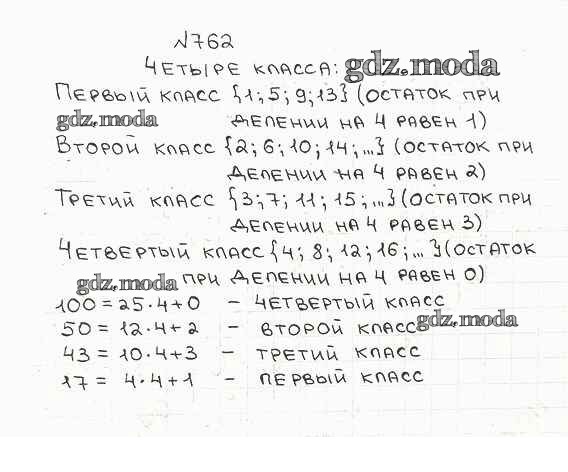 №762
Четыре класса: gdz.moda
Первый класс {1; 5; 9; 13} (остаток при
gdz.moda делении на 4 равен 1)
Второй класс {2; 6; 10; 14; ...} (остаток при
делении на 4 равен 2)
Третий класс {3; 7; 11; 15; ...} (остаток при
делении на 4 равен 3)
Четвертый класс {4; 8; 12; 16; ... } (остаток
gdz.moda при делении на 4 равен 0)
100 = 25·4+0 – четвертый класс
50 = 12·4+2 – второй класс gdz.moda
43 = 10·4+3 – третий класс
17 = 4·4+1 – первый класс